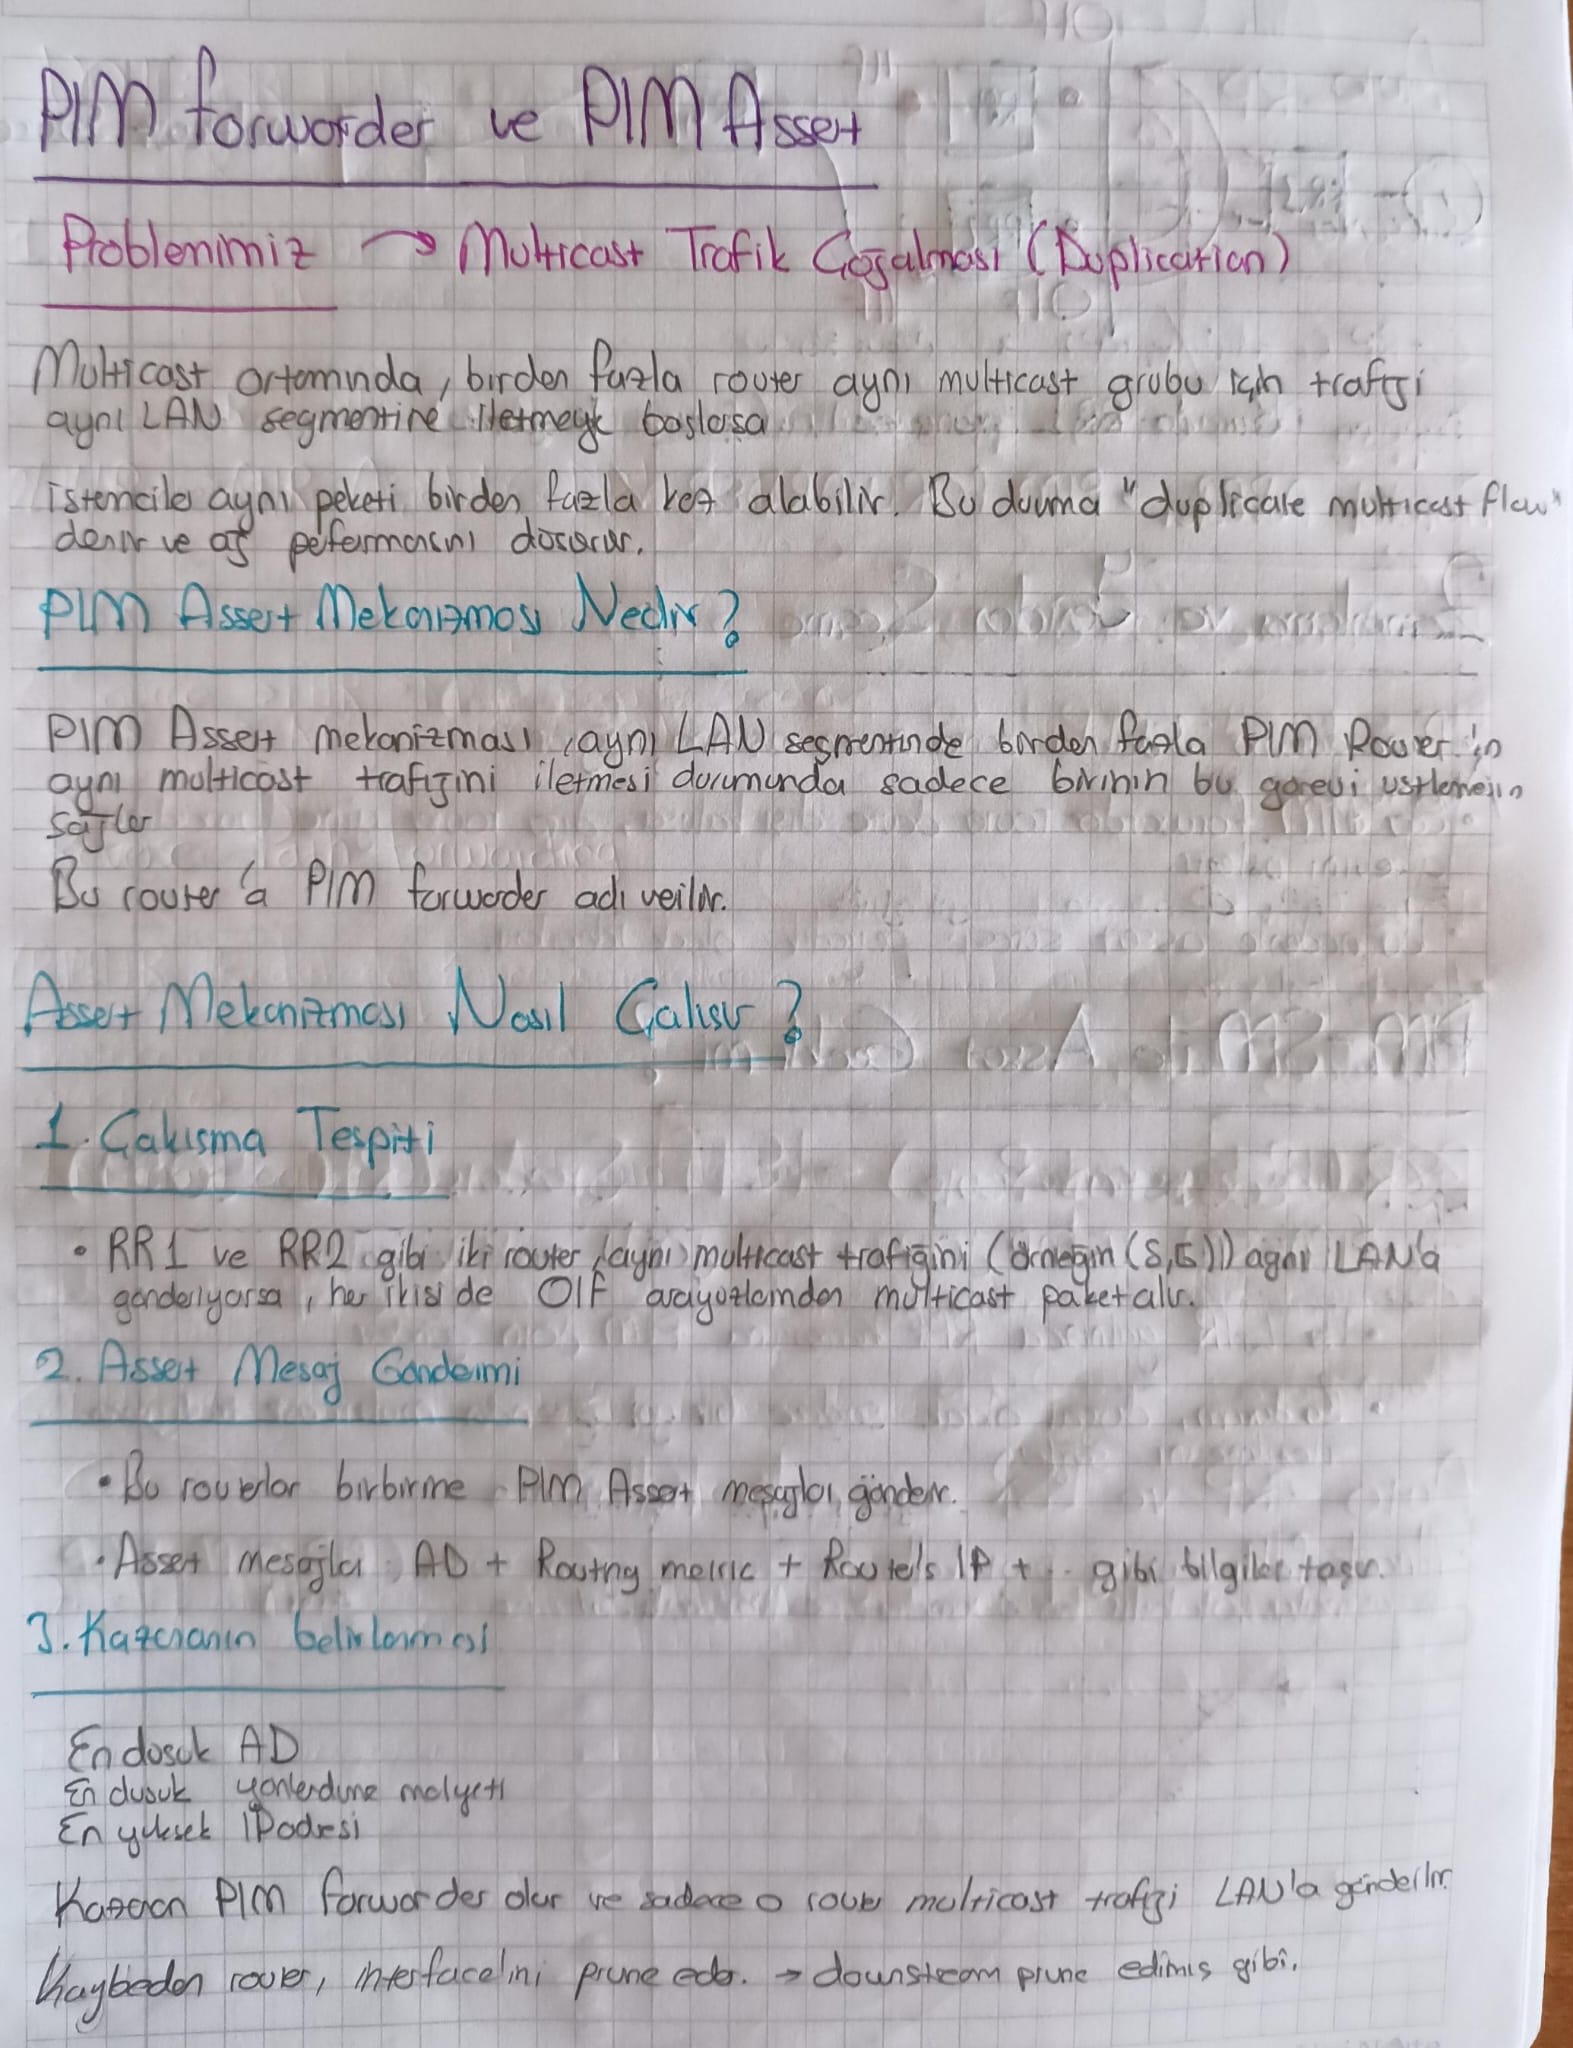 PIM forworder ve PIM Assert
Problemimiz → Multicast Trafik Çoğalması (Duplication)
Multicast ortamında, birden fazla router aynı multicast grubu için trafiği
aynı LAN segmentine iletmeye başlarsa
istemciler aynı peketi birden fazla kez alabilir. Bu duruma "duplicate multicast flow"
denir ve ağ peformansını düşürür.
PIM Assert Mekanizması Nedir?
PIM Assert mekanizması, aynı LAN segmentinde birden fazla PIM Router'ın
aynı multicast trafiğini iletmesi durumunda sadece birinin bu görevi ustlenmesin
sağlar
Bu router'a PIM forwarder adı verilir.
Assert Mekanizması Nasıl Çalısır?
1. Çakısma Tespiti
• RR1 ve RR2 gibi iki router, aynı multicast trafiğini (örneğin (S,G)) aynı LAN'a
gönderiyorsa, her ikisi de OIF arayüzlerinden multicast paket alır.
2. Assert Mesaj Gonderimi
• Bu routerlar birbirine PIM Assert mesajları gönderir.
• Assert mesajları AD + Routing metric + Router's IP + .. gibi bilgiler taşır.
3. Kazananın belirlenmesi
En dusuk AD
En dusuk yonlendirme maliyeti
En yuksek IP adresi
Kazanan PIM forwarder olur ve sadece o router multicast trafiği LAN'a gönderilir.
Kaybeden router, interface'ini prune eder. → downstream prune edilmis gibi.